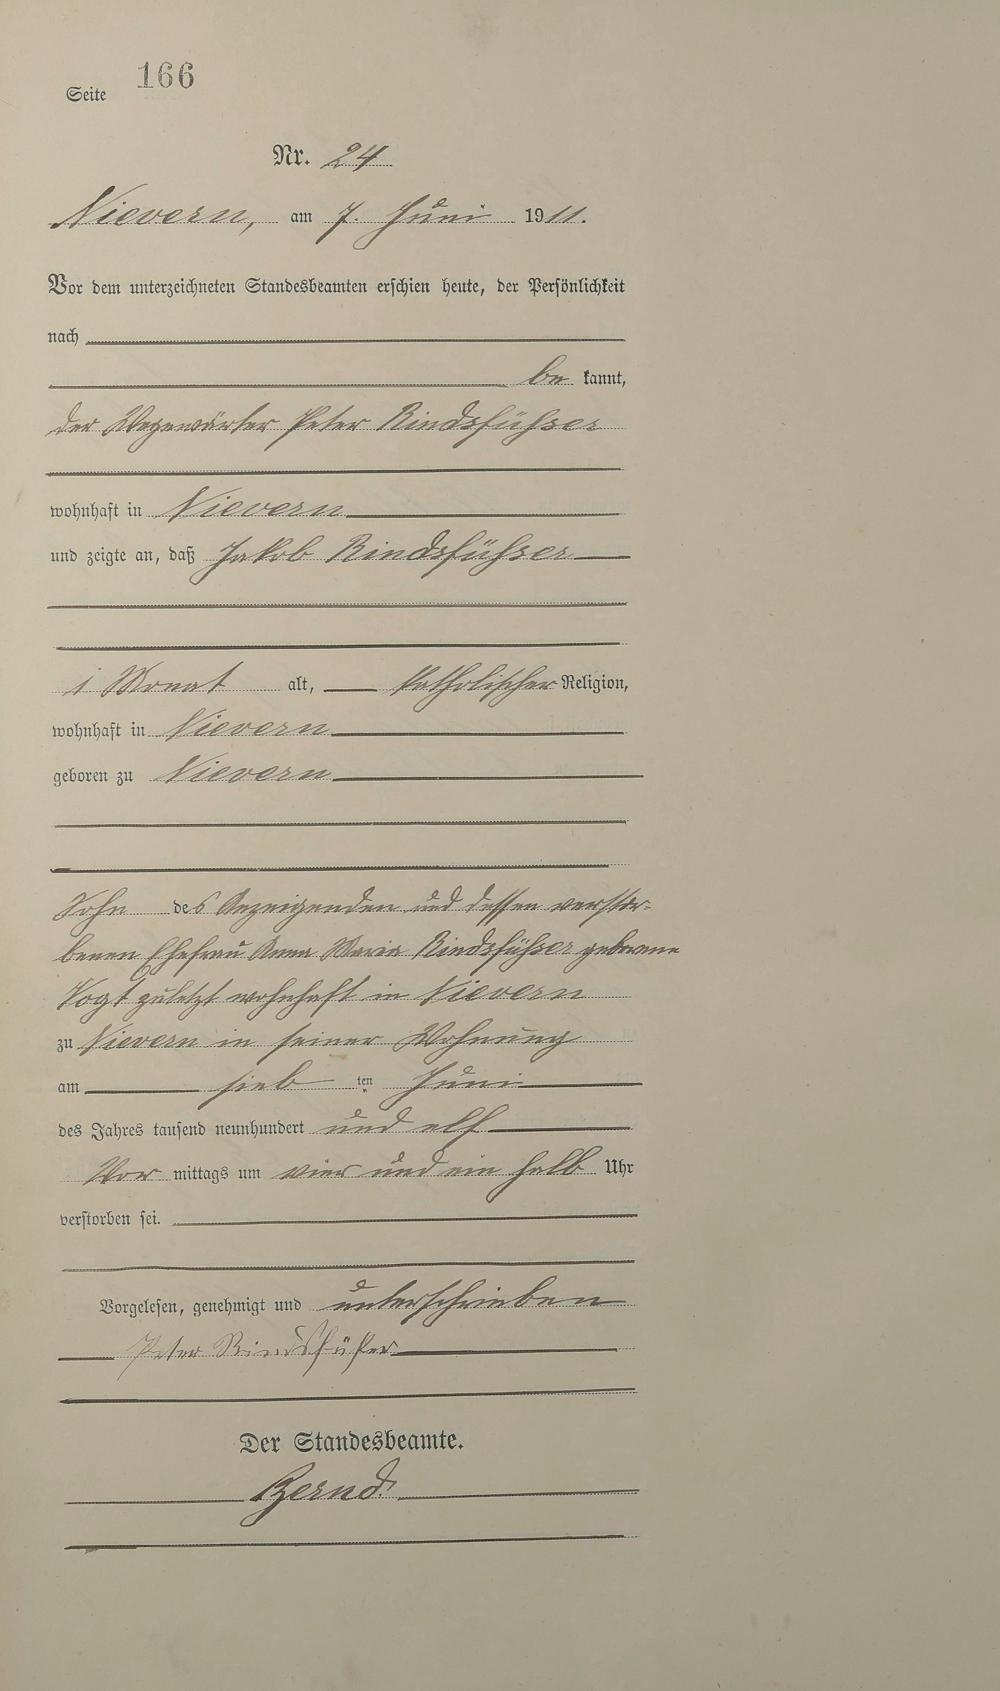 Seite 166
Nr. 24
Nievern, am 7. Juni 1911.
Vor dem unterzeichneten Standesbeamten erschien heute, der Persönlichkeit
nach
be kannt,
der Wegewärter Peter Rindsfüßer
wohnhaft in Nievern
und zeigte an, daß Jakob Rindsfüßer
1 Monat alt, katholischer Religion,
wohnhaft in Nievern
geboren zu Nievern
Sohn des Anzeigenden und dessen verstor-
benen Ehefrau Anna Maria Rindsfüßer geborene
Vogt zuletzt wohnhaft in Nievern
zu Nievern in seiner Wohnung
am sieb ten Juni
des Jahres tausend neunhundert und elf
Vor mittags um vier und ein halb Uhr
verstorben sei.
Vorgelesen, genehmigt und unterschrieben
Peter Rindsfüßer
Der Standesbeamte.
Bernd.